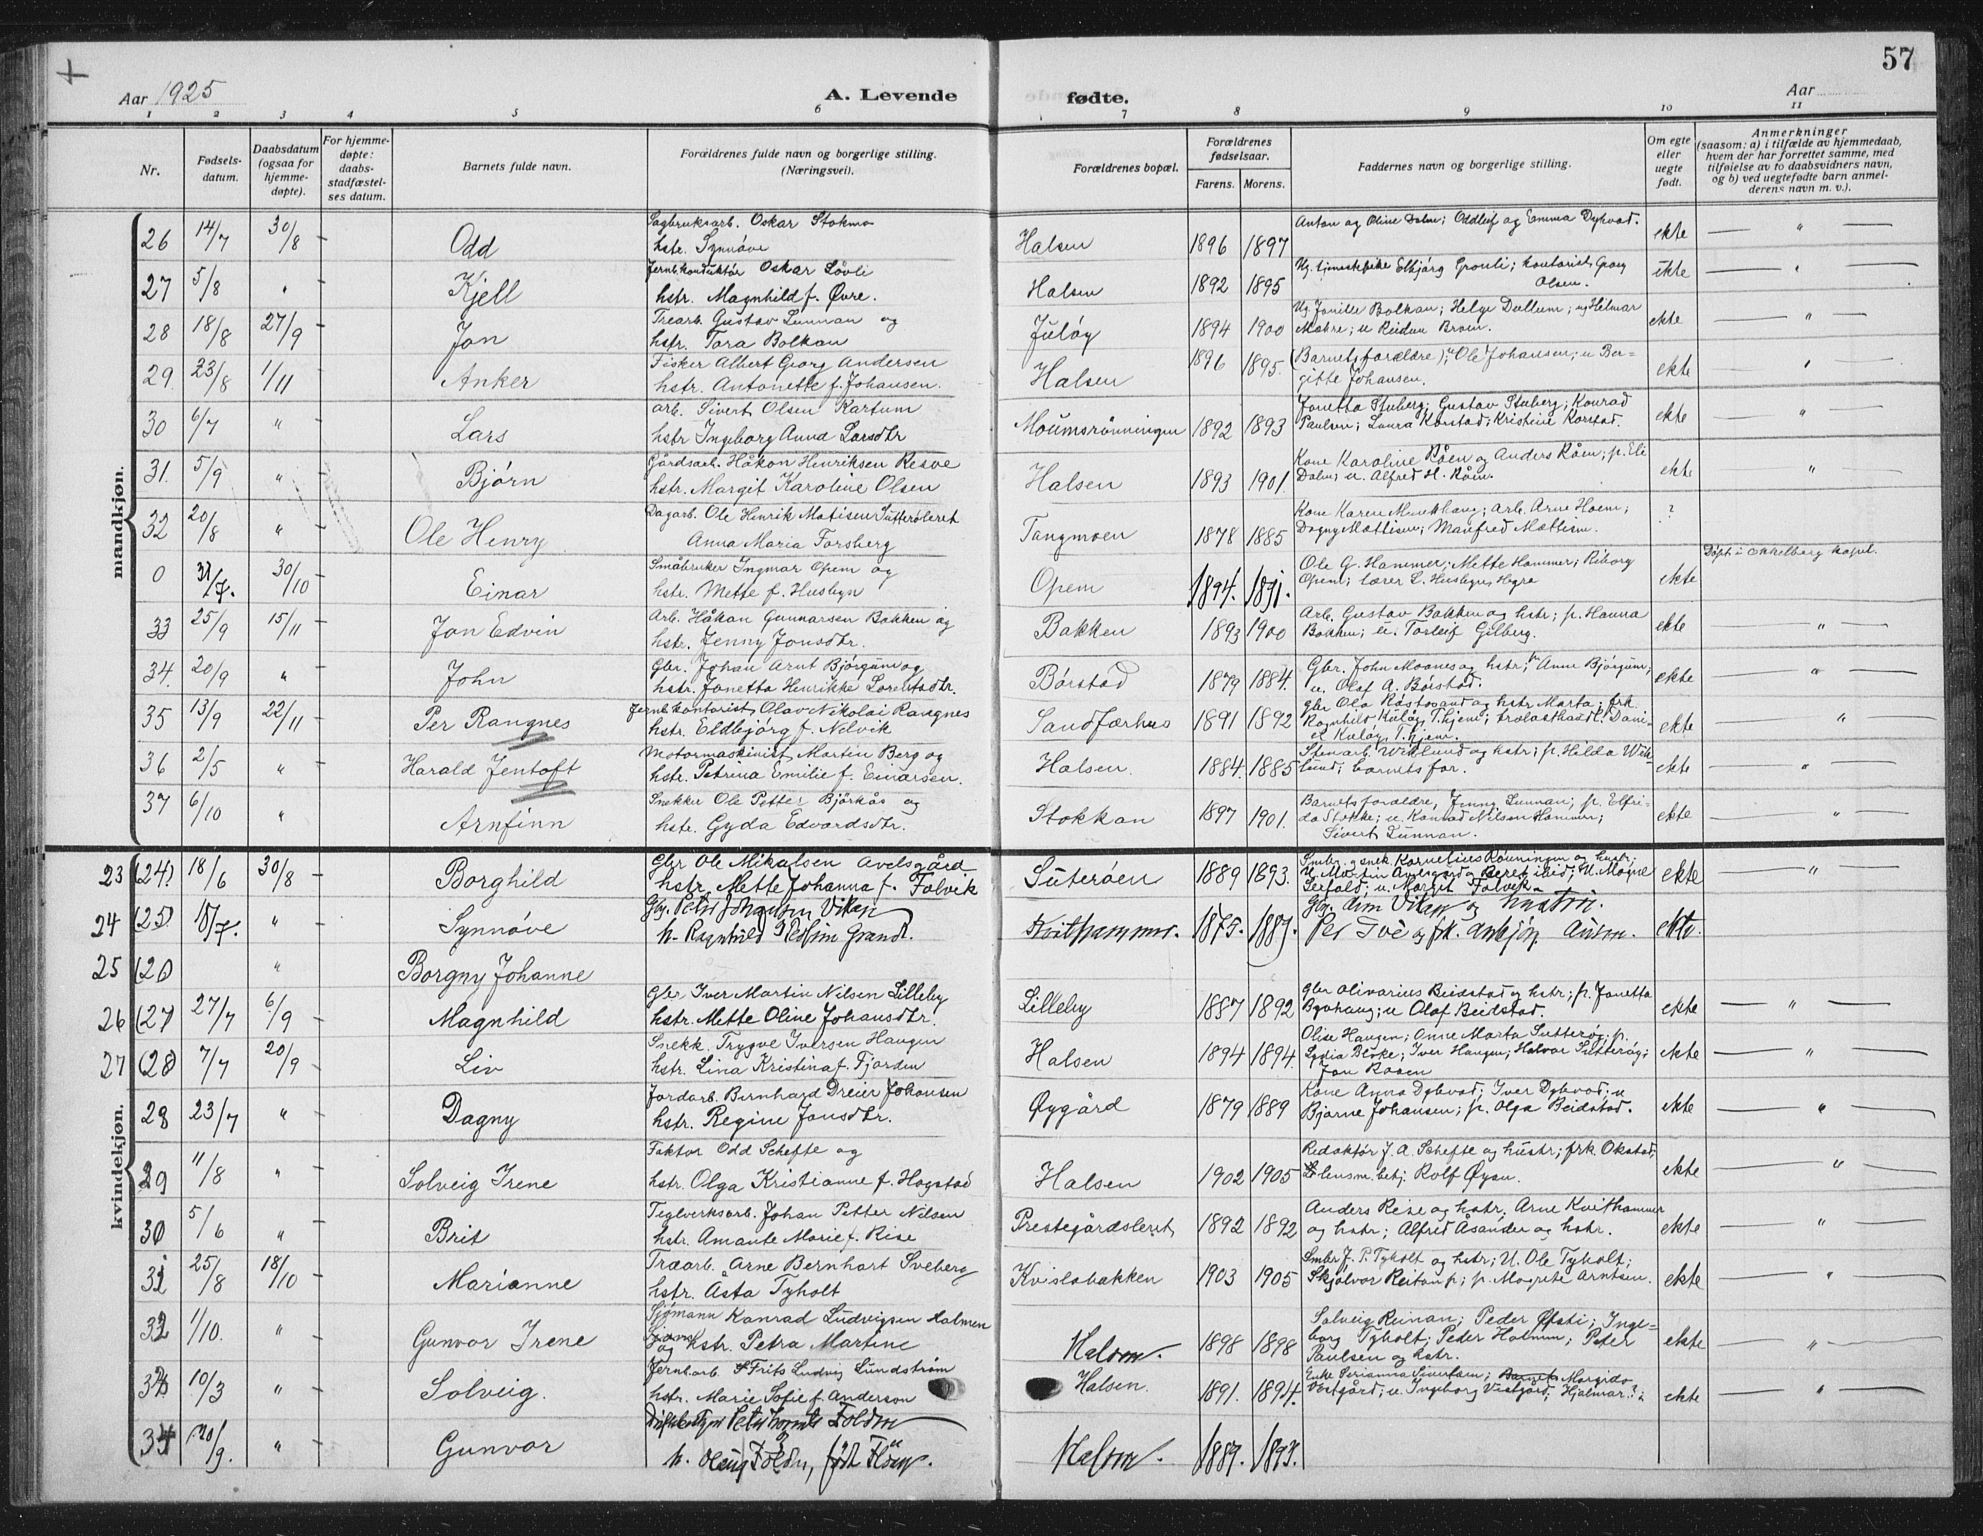 57
Aar 1925
A. Levende fødte.
Aar
1 2 3 4 5 6 7 8 9 10 11
Nr.
Fødsels-
datum.
Daabsdatum
(ogsaa for
hjemme-
døpte).
For hjemme-
døpte:
daabs-
stadfæstel-
ses datum.
Barnets fulde navn.
Forældrenes fulde navn og borgerlige stilling.
(Næringsvei).
Forældrenes bopæl.
Forældrenes
fødselsaar.
Farens. Morens.
Faddernes navn og borgerlige stilling.
Om egte
eller
uegte
født.
Anmerkninger
(saasom: a) i tilfælde av hjemmedaab,
hvem der har forrettet samme, med
tilføielse av to daabsvidners navn,
og b) ved uegtefødte barn anmel-
derens navn m. v.).
mandkjøn.
26 14/7 30/8 – Odd Sagbruksarb. Oskar Stokmo
hstr. Synnöve Halsen 1896 1897 Anton og Oline Dalen; Oddleif og Emma Dybvad. ekte — " —
27 5/8 " – Kjell Jernb.konduktör Oskar Lövli
hstr. Magnhild f. Øvre. Halsen 1892 1895 Elbjörg Gronli; kontorist Georg
Olsen. ekte — " —
28 18/8 27/9 – Jon Trearb. Gustav Lunnan og
hstr. Tora Bolkan Juløy 1894 1900 Ug. Jonille Bolkan; Helge Dullum; ug Helmar
Mohre; u Reidun Broen. ekte — " —
29. 23/8 1/11 – Anker Fisker Albert Georg Andersen
hstr. Antonette f. Johansen. Halsen 1896 1895. (Barnets forældre); Ole Johansen; u Ber-
gitte Johansen. ekte — " —
30 6/7 " – Lars arb. Sivert Olsen Kartum
hstr Ingeborg Anna Larsdtr Moumsrönningen 1892 1893 Jonetta Stuberg; Gustav Stuberg; Konrad
Paulsen; Laura Korstad; Kristine Korstad. ekte — " —
31. 5/9 " – Bjørn Gårdsarb. Håkon Henriksen Resve
hstr. Margit Karoline Olsen Halsen 1893 1901. Kone Karoline Röen og Anders Röen; p. Eli
Dalen; u. Alfred H. Röen. ekte "
32 20/8 " – Ole Henry Dagarb. Ole Henrik Matisen Sutteröleret
Anna Maria Forsberg Tangmoen 1878 1885 Kone Karen Munkhaug; arb. Arne Hoem;
Dagny Mathisen; Manfred Mathisen. ?
0 31/7. 30/10 – Einar Småbruker Ingmar Opem og
hstr. Mette f. Husbyn Opem 1894. 1891. Ole G. Hammer; Mette Hammer; Riborg
Opem; lærer L. Husbyn, Hegra ekte Döpt i Elvelberg kapel.
33 25/9 15/11 – Jon Edvin Arb. Håkon Gunnarsen Bakken og
hstr. Jenny Jonsdtr. Bakken 1893 1900 Arb. Gustav Bakken og hstr; p. Hanna
Bakken; u. Torleif Gilberg. ekte — " —
34. 20/9 " – John Gbr. Johan Arnt Bjørgum og
hstr. Jonetta Henrikke Lorentsdtr. Börstad 1879 1884. Gbr. John Moanes og hstr; Anne Bjørgum;
u. Olaf A. Börstad. ekte — " —
35 13/9 22/11 – Per Rangnes Jernb.kontorist Olav Nikolai Rangnes
hstr. Eldbjörg f. Nelvik Sandfærhus 1891 1892 gbr Ola Röstvand og hstr Marta; frk.
Ragnhild Kulöy T.hjem; trælasthandl. Dani-
el Kulöy, T.hjem. ekte "
36 2/5 " – Harald Jentoft Motormaskinist Martin Berg og
hstr. Petrina Emilie f. Einarsen. Halsen. 1884. 1885 Stenarb. Wiklund og hstr; p. Hilda Wik-
lund; barnets far. ekte — " —
37 6/10 " – Arnfinn Snekker Ole Petter Björkås og
hstr. Gyda Edvardsdtr. Stokkan 1897 1901. Barnets forældre, Jenny Lunnan; p. Elfri-
da Stokke; u Konrad Nilsen Hammer;
Sivert Lunnan. ekte — " —
kvindekjøn.
23 (24) 18/6 30/8 – Borghild Gbr Ole Mikalsen Avelsgård
hstr. Mette Johanna f. Folvik Suterøen 1889 1893. Smbr. og snek. Kornelius Rönningen og hustr;
U. Martin Avelsgård; U. Magne
Leifald; u. Margit Folvik. ekte — " —
24 (25) 18/7. " – Synnöve Gbr. Peter Johansen Vikan
h. Ragnhild Kvithammer. 1875. 1889. Gbr. Arn Vikan og hustru.
Per Tvè og frk. ekte.
25 (26) " Borgny Johanne
26 (27) 27/7 6/9 – Magnhild Gbr Iver Martin Nilsen Lilleby
hstr. Mette Oline Johansdtr. Lilleby 1887 1892 gbr Olivarius Beidstad og hstr; p. Jonetta
Byahaug; u Olaf Beidstad. ekte — " —
27 (28) 7/7 20/9 – Liv Snekk. Trygve Iversen Haugen
hstr. Lina Kristina f. Fjorden Halsen 1894 1894. Olise Haugen; Anne Marta Sutterøy; p.
Lydia Berke; Iver Haugen; Halvor Sutterøy;
Jon Röaen ekte "
28 23/7 " – Dagny Jordarb. Bernhard Dreier Johansen
hstr. Regine Jonsdtr. Øygård 1879 1889 Kone Anna Dybvad; Iver Dybvad; u
Bjarne Johansen; p. Olga Beidstad. ekte — " —
29 11/8 " – Solveig Irene Faktor Odd Schefte og
hstr. Olga Kristianne f. Hogstad Halsen 1902 1905 Redaktør J. A. Schefte og hustr; frk. Okstad,
lensm.betj. Rolf Øyan. ekte — " —
30 5/6 " – Brit Teglverksarb. Johan Petter Nilsen
hstr. Amante Marie f. Rise Prestegårdsleret 1892 1892 Anders Rise og hstr. Arne Kvithammer
og hstr; Alfred Åsander og hstr. ekte — " —
31 25/8 18/10 – Marianne Træarb. Arne Bernhart Sveberg
hstr. Åsta Tyholt Kvislabakken 1903 1905 Smbr J. P. Tyholt og hstr; U. Ole Tyholt;
Skjolvor Reitan p; p. Magrete Arntsen. ekte "
32 1/10. " – Gunvor Irene Sjømann Konrad Ludvigsen Holmen
og hstr. Petra Martine Halsen. 1898 1898 Solveig Reinan; Peder Øfsti; Inge-
borg Tyholt; Peder Holmen; Peter
Paulsen og hstr. ekte — " —
33 10/3 " – Solveig. Jernb.arb Frits Ludvig Lundström
hstr. Marie Sofie f. Anderson Halsen. 1891. 1894. Enke Serianna Sivertsen; Margido
Vestgård; u. Ingeborg Vestgård; Hjalmar?; ekte — " —
34 20/9. " – Gunvor Folden
h. Olaug Folden, født Halsen. 1889. 1893.